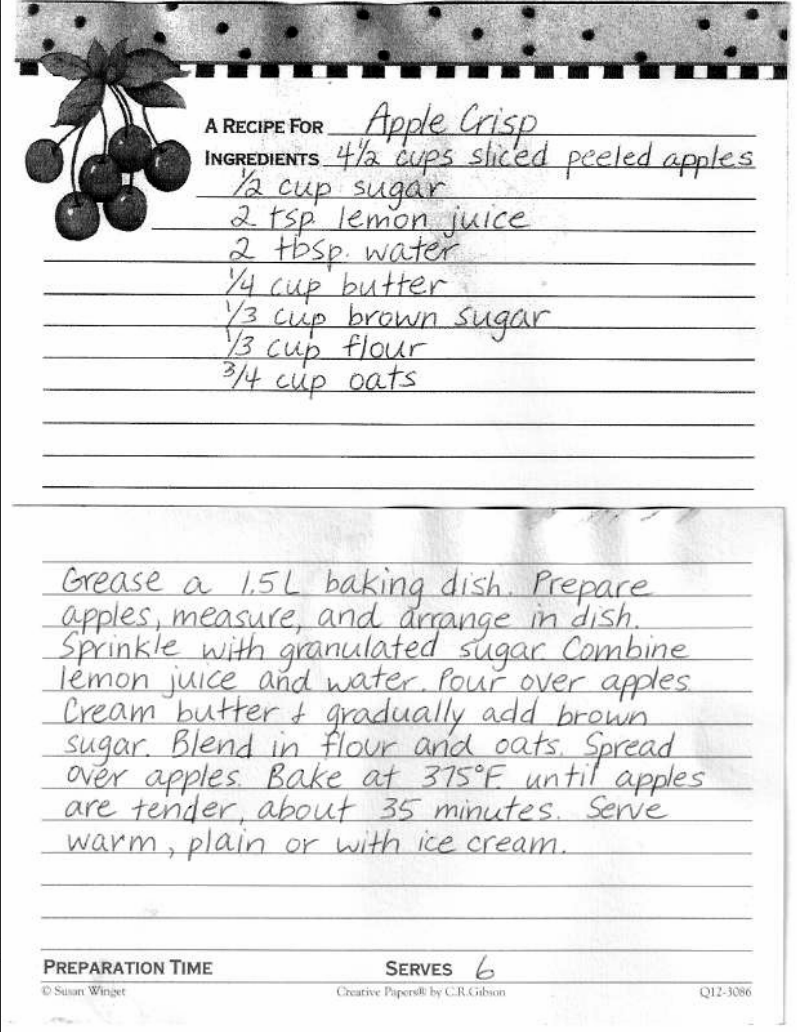 A RECIPE FOR Apple Crisp
INGREDIENTS 4 1/2 cups sliced peeled apples
1/2 cup sugar
2 tsp. lemon juice
2 tbsp. water
1/4 cup butter
1/3 cup brown sugar
1/3 cup flour
3/4 cup oats
Grease a 1.5 L baking dish. Prepare
apples, measure, and arrange in dish.
Sprinkle with granulated sugar. Combine
lemon juice and water. Pour over apples.
Cream butter & gradually add brown
sugar. Blend in flour and oats. Spread
over apples. Bake at 375°F. until apples
are tender, about 35 minutes. Serve
warm, plain or with ice cream.
PREPARATION TIME SERVES 6
© Susan Winget Creative Papers® by C.R.Gibson Q12-3086